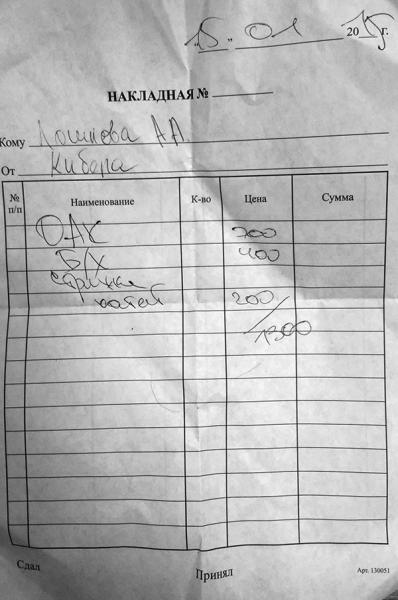 „15„ 01 2015 г.
НАКЛАДНАЯ №
Кому Лошкова А А
От Кибера
№ п/п Наименование К-во Цена Сумма
ОАК 700
Б/Х 400
стрижка
когтей 200
/1300
Сдал
Принял
Арт. 130051